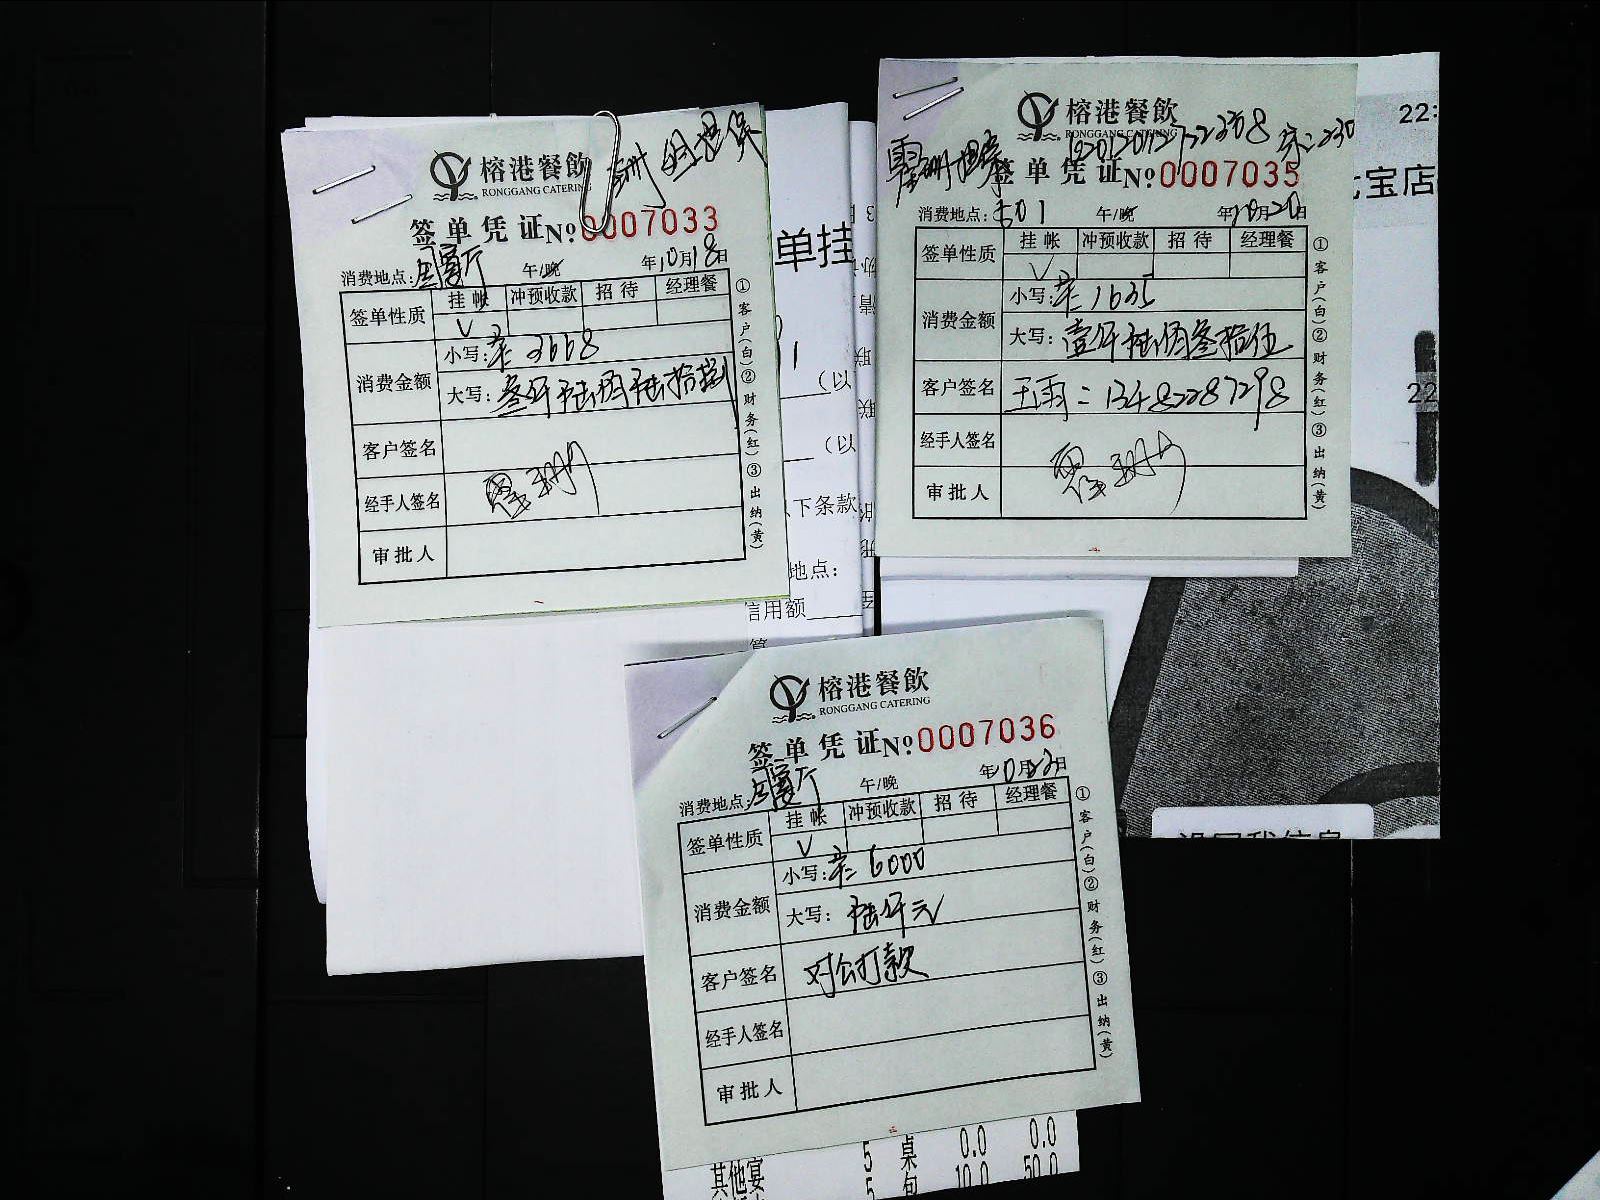 榕港餐飲
RONGGANG CATERING
担保
签单凭证 No 0007033
消费地点: 宴厅 午/晚 年10月18日
签单性质 挂帐 冲预收款 招待 经理餐
V
消费金额 小写: 3668
大写: 叁仟陆佰陆拾捌
客户签名
经手人签名
审批人
①客户(白)②财务(红)③出纳(黄)
单挂
(以
(以
下条款
地点:
信用额
榕港餐飲
RONGGANG CATERING
担保
签单凭证 No 0007035
消费地点: 501 午/晚 年10月20日
签单性质 挂帐 冲预收款 招待 经理餐
V
消费金额 小写: 1635
大写: 壹仟陆佰叁拾伍
客户签名 王雨: 13482287298
经手人签名
审批人
①客户(白)②财务(红)③出纳(黄)
22:
宝店
22
榕港餐飲
RONGGANG CATERING
签单凭证 No 0007036
消费地点: 宴厅 午/晚 年10月23日
签单性质 挂帐 冲预收款 招待 经理餐
V
消费金额 小写: 6000
大写: 陆仟元
客户签名 对公打款
经手人签名
审批人
①客户(白)②财务(红)③出纳(黄)
5 桌 0.0 0.0
其他宴 5 包 10.0 50.0